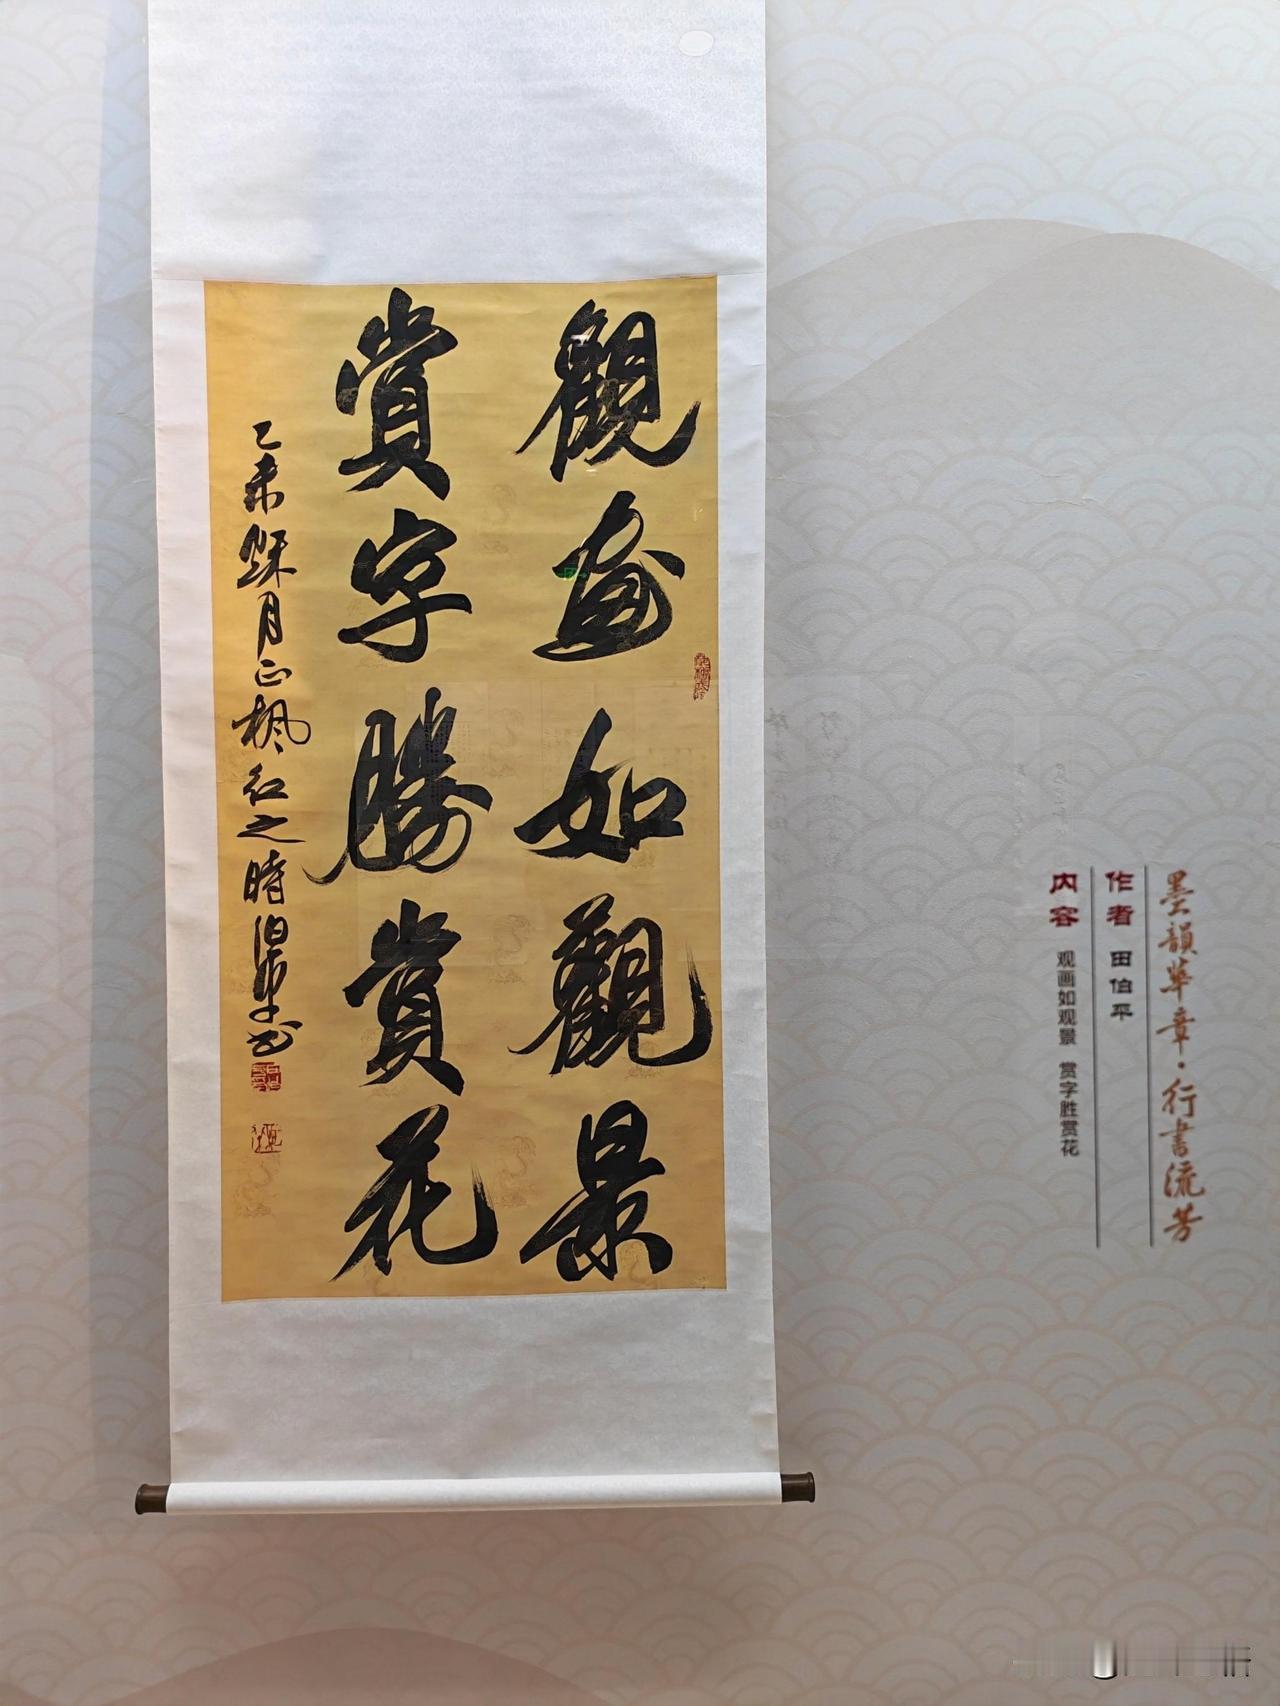 觀畫如觀景
賞字勝賞花
乙未秋月正楓紅之時伯平书
墨韻華章·行書流芳
作者 田伯平
内容 观画如观景 赏字胜赏花